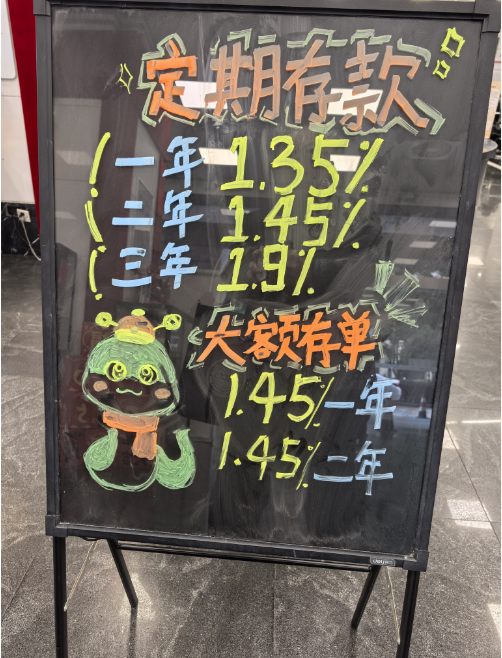 定期存款
一年 1.35%
二年 1.45%
三年 1.9%
大额存单
1.45% 一年
1.45% 二年